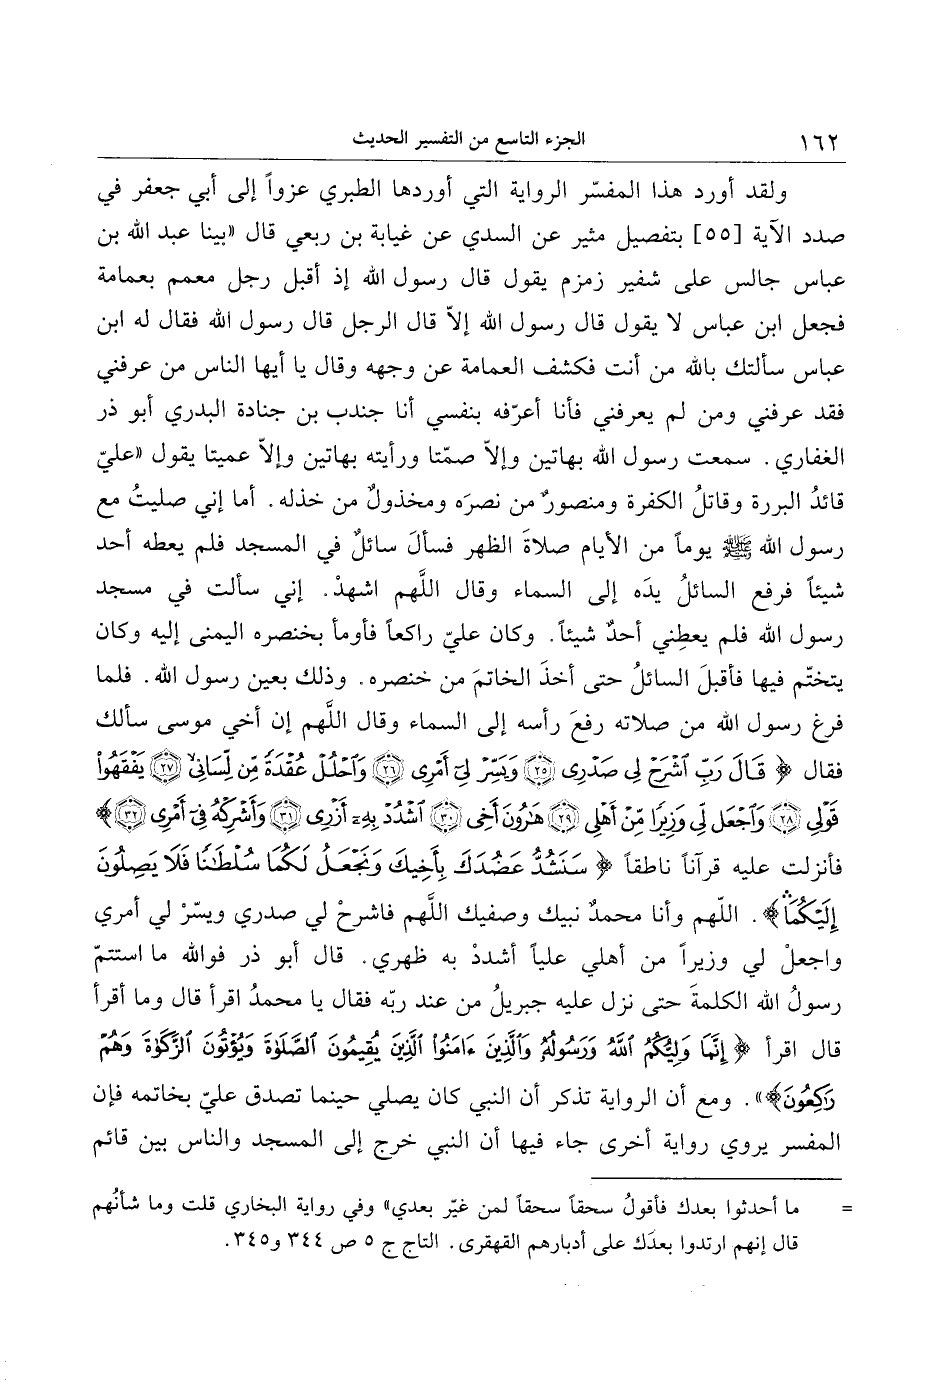 ١٦٢ الجزء التاسع من التفسير الحديث
ولقد أورد هذا المفسّر الرواية التي أوردها الطبري عزواً إلى أبي جعفر في
صدد الآية [٥٥] بتفصيل مثير عن السدي عن غيابة بن ربعي قال «بينا عبد الله بن
عباس جالس على شفير زمزم يقول قال رسول الله إذ أقبل رجل معمم بعمامة
فجعل ابن عباس لا يقول قال رسول الله إلاّ قال الرجل قال رسول الله فقال له ابن
عباس سألتك بالله من أنت فكشف العمامة عن وجهه وقال يا أيها الناس من عرفني
فقد عرفني ومن لم يعرفني فأنا أعرّفه بنفسي أنا جندب بن جنادة البدري أبو ذر
الغفاري. سمعت رسول الله بهاتين وإلاّ صمّتا ورأيته بهاتين وإلاّ عميتا يقول «عليّ
قائدُ البررة وقاتلُ الكفرة ومنصورٌ من نصرَه ومخذولٌ من خذله. أما إني صليتُ مع
رسول الله ﷺ يوماً من الأيام صلاةَ الظهر فسألَ سائلٌ في المسجد فلم يعطه أحد
شيئاً فرفع السائلُ يدَه إلى السماء وقال اللَّهم اشهدْ. إني سألت في مسجد
رسول الله فلم يعطِني أحدٌ شيئاً. وكان عليّ راكعاً فأومأ بخنصره اليمنى إليه وكان
يتختّم فيها فأقبلَ السائلُ حتى أخذَ الخاتمَ من خنصره. وذلك بعين رسول الله. فلما
فرغ رسول الله من صلاته رفعَ رأسه إلى السماء وقال اللَّهم إن أخي موسى سألك
فقال ﴿قَالَ رَبِّ ٱشْرَحْ لِي صَدْرِى ٢٥ وَيَسِّرْ لِىٓ أَمْرِى ٢٦ وَٱحْلُلْ عُقْدَةً مِّن لِّسَانِى ٢٧ يَفْقَهُوا۟
قَوْلِى ٢٨ وَٱجْعَل لِّى وَزِيرًا مِّنْ أَهْلِى ٢٩ هَٰرُونَ أَخِى ٣٠ ٱشْدُدْ بِهِۦٓ أَزْرِى ٣١ وَأَشْرِكْهُ فِىٓ أَمْرِى ٣٢﴾
فأنزلت عليه قرآناً ناطقاً ﴿سَنَشُدُّ عَضُدَكَ بِأَخِيكَ وَنَجْعَلُ لَكُمَا سُلْطَٰنًا فَلَا يَصِلُونَ
إِلَيْكُمَا﴾. اللّهم وأنا محمدٌ نبيك وصفيك اللَّهم فاشرحْ لي صدري ويسّرْ لي أمري
واجعلْ لي وزيراً من أهلي علياً أشددْ به ظهري. قال أبو ذر فوالله ما استتمّ
رسولُ الله الكلمةَ حتى نزل عليه جبريلُ من عند ربّه فقال يا محمدُ اقرأ قال وما أقرأ
قال اقرأ ﴿إِنَّمَا وَلِيُّكُمُ ٱللَّهُ وَرَسُولُهُۥ وَٱلَّذِينَ ءَامَنُوا۟ ٱلَّذِينَ يُقِيمُونَ ٱلصَّلَوٰةَ وَيُؤْتُونَ ٱلزَّكَوٰةَ وَهُمْ
رَٰكِعُونَ﴾». ومع أن الرواية تذكر أن النبي كان يصلي حينما تصدق عليّ بخاتمه فإن
المفسر يروي رواية أخرى جاء فيها أن النبي خرج إلى المسجد والناس بين قائم
= ما أحدثوا بعدك فأقولُ سحقاً سحقاً لمن غيّر بعدي» وفي رواية البخاري قلت وما شأنُهم
قال إنهم ارتدوا بعدَك على أدبارهم القهقرى. التاج ج ٥ ص ٣٤٤ و٣٤٥.